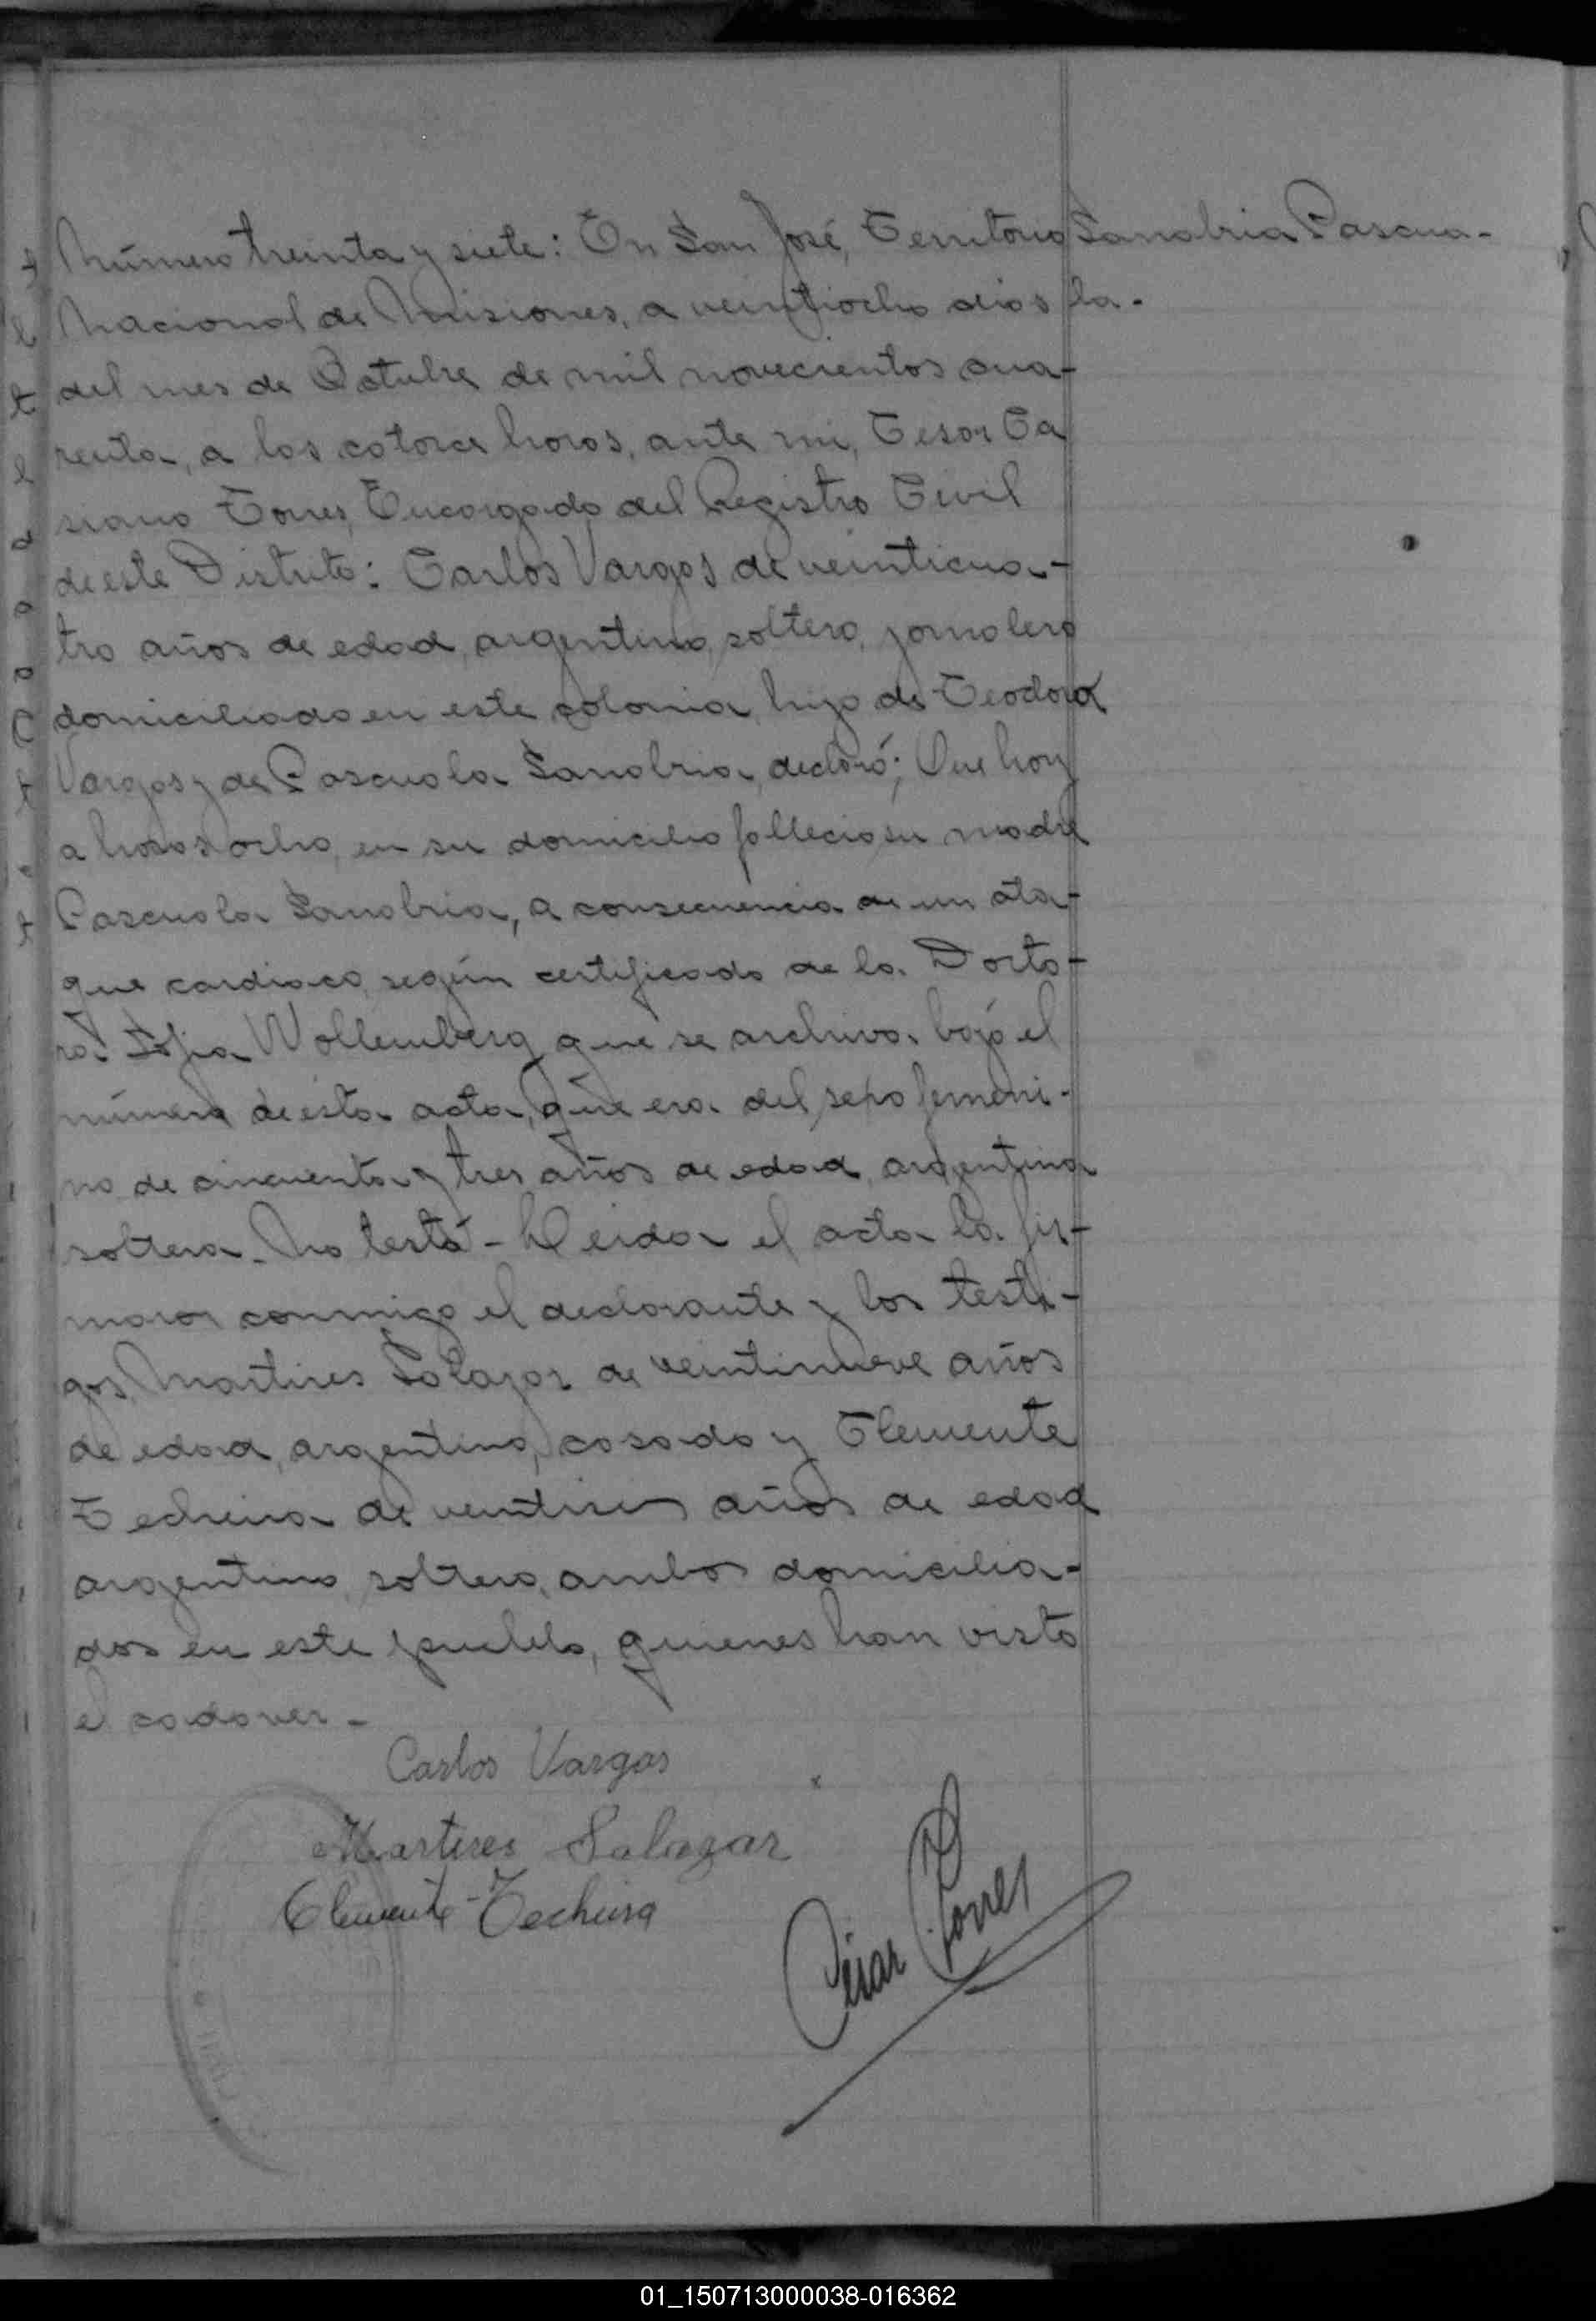 Número treinta y siete: En San José, Territorio
Sanabria Pascua-
la.
Nacional de Misiones, a veintiocho dias
del mes de Octubre de mil novecientos cua-
renta, a las catorce horas, ante mi, Cesar Ca
siano Torres, Encargado del Registro Civil
de este Distrito: Carlos Vargas de veinticua-
tro años de edad, argentino, soltero, jornalero
domiciliado en este colonia, hijo de Teodora
Vargas y de Pascuala Sanabria, declaró; Que hoy
a horas ocho, en su domicilio fallecio su madre
Pascuala Sanabria, a consecuencia de un ata-
que cardiaco, según certificado de la Docto-
ra Sofia Wollemberg que se archiva bajo el
número de esta acta, que era del sexo femeni-
no de cincuenta y tres años de edad, argentina
soltera. No testó - Leida el acta la fir-
maron conmigo el declarante y los testi-
gos, Martires Salazar de veintinueve años
de edad, argentino, casado y Clemente
Techeira de años de edad
argentino, soltero, ambos domicilia-
dos en este pueblo, quienes han visto
el cadaver -
Carlos Vargas
Martires Salazar
Clemente Techeira
César C. Torres
01_150713000038-016362